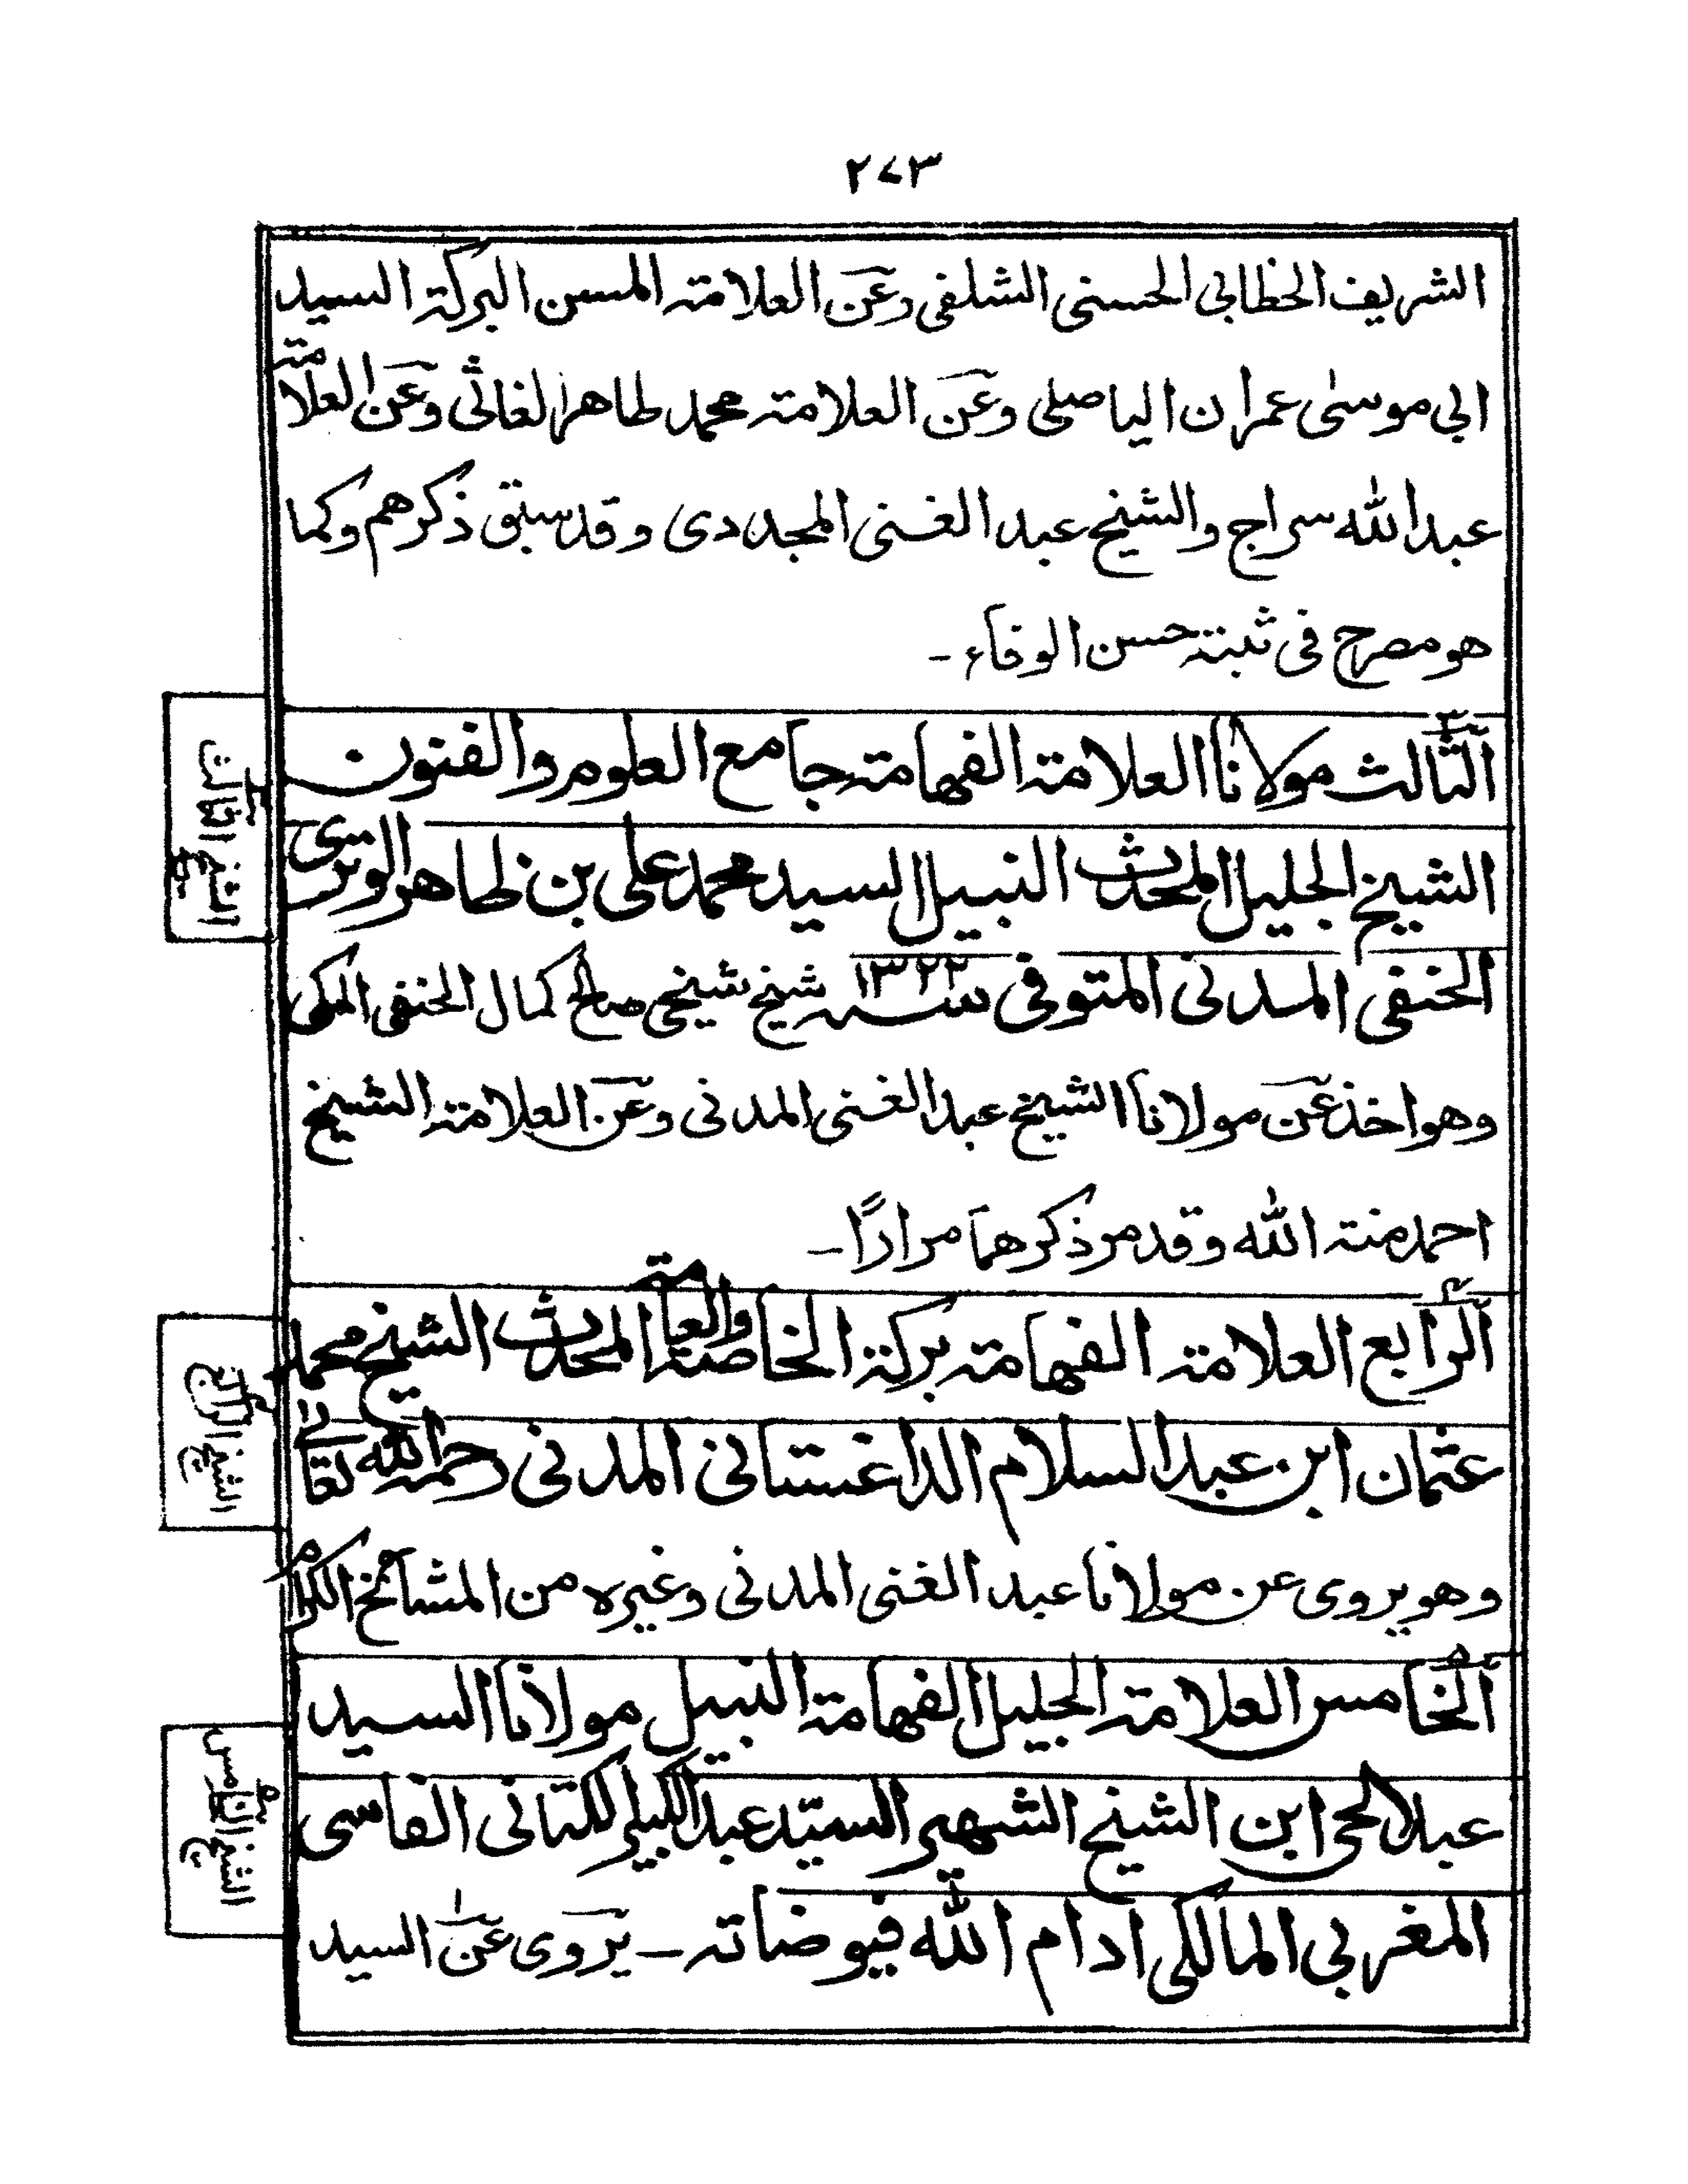 ٢٧٣
الشريف الخطابي الحسني الشلفي وعن العلامة المسن البركة السيد
ابي موسى عمران الياصلي وعن العلامة محمد طاهر الغاثي وعن العلامة
عبد الله سراج والشيخ عبد الغني المجددي وقد سبق ذكرهم وكما
هو مصرح في ثبته حسن الوفاء -
الثالث مولانا العلامة الفهامة جامع العلوم والفنون
الشيخ الثالث
الشيخ الجليل المحدث النبيل السيد محمد علي بن ظاهر الوتري
الحنفي المدني المتوفى سنه ١٣٢٢ شيخ شيخي صالح كمال الحنفي المكي
وهو اخذ عن مولانا الشيخ عبد الغني المدني وعن العلامة الشيخ
احمد منة الله وقد مر ذكرهما مرارًا -
الرابع العلامة الفهامة بركة الخاصة والعامة المحدث الشيخ محمد
الشيخ الرابع
عثمان ابن عبد السلام الداغستاني المدني رحمه الله تعالى
وهو يروى عن مولانا عبد الغني المدني وغيره من المشائخ الكرام
الخامس العلامة الجليل الفهامة النبيل مولانا السيد
الشيخ الخامس
عبد الحي ابن الشيخ الشهير السيد عبد الكبير الكتاني الفاسي
المغربي المالكي ادام الله فيوضاته - يروى عن السيد